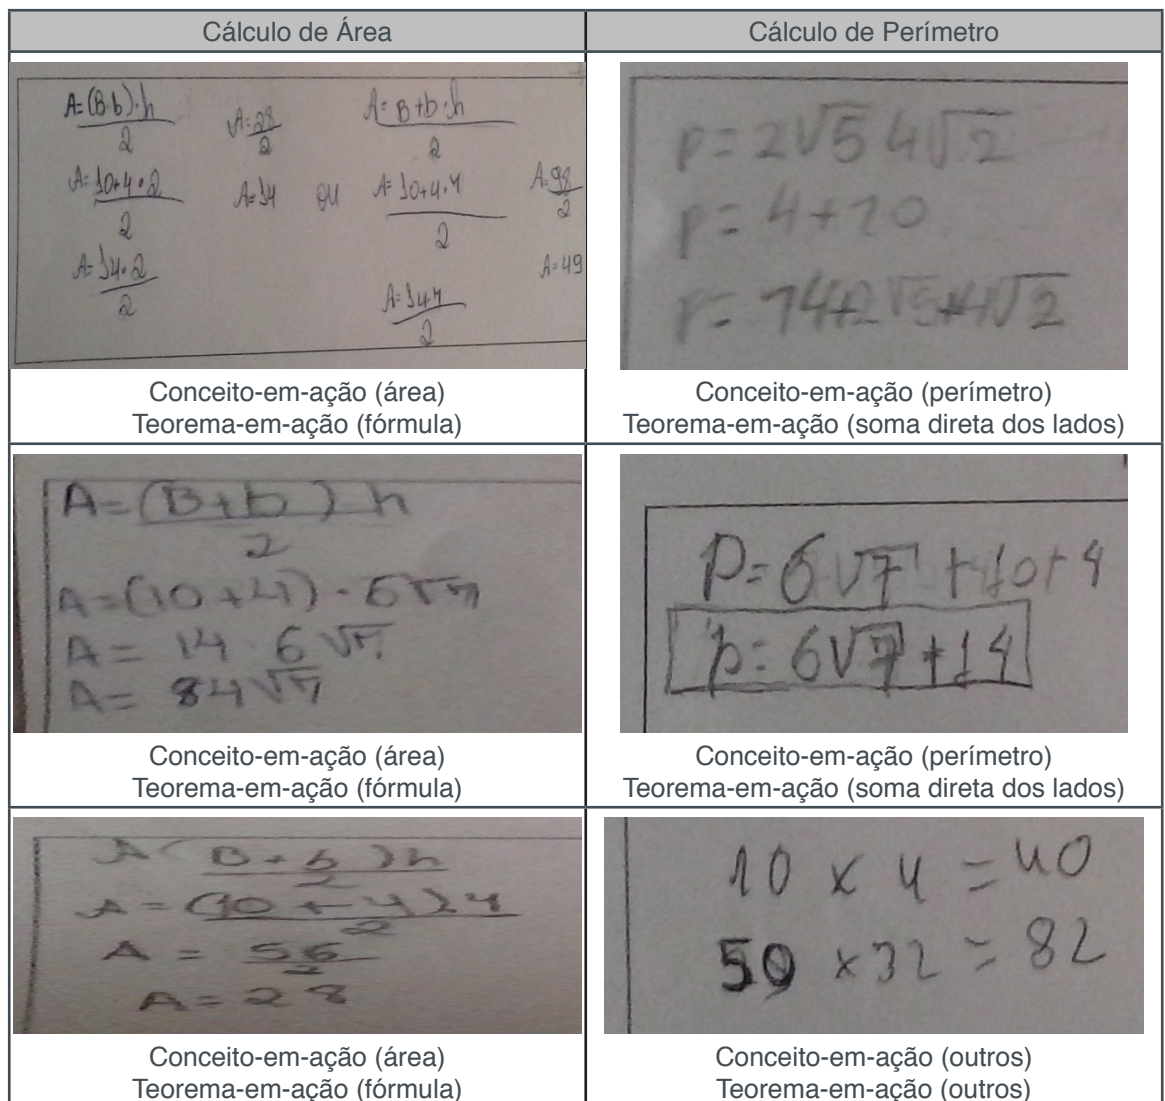 Cálculo de Área
Cálculo de Perímetro
A=(B·b)·h
2
A=28
2
A=B+b·h
2
A=10+4·2
2
A=14
ou
A=10+4·7
2
A=98
2
A=14·2
2
A=49
A=14·7
2
p=2√5 4√2
p=4+10
p=14+2√5+4√2
Conceito-em-ação (área)
Teorema-em-ação (fórmula)
Conceito-em-ação (perímetro)
Teorema-em-ação (soma direta dos lados)
A=(B+b) h
2
A=(10+4)·6√7
A= 14 6√7
A= 84√7
P=6√7+10+4
p=6√7+14
Conceito-em-ação (área)
Teorema-em-ação (fórmula)
Conceito-em-ação (perímetro)
Teorema-em-ação (soma direta dos lados)
A (B+b)h
2
A=(10+4)4
2
A=56
2
A=28
10 x 4 = 40
50 x 32 = 82
Conceito-em-ação (área)
Teorema-em-ação (fórmula)
Conceito-em-ação (outros)
Teorema-em-ação (outros)